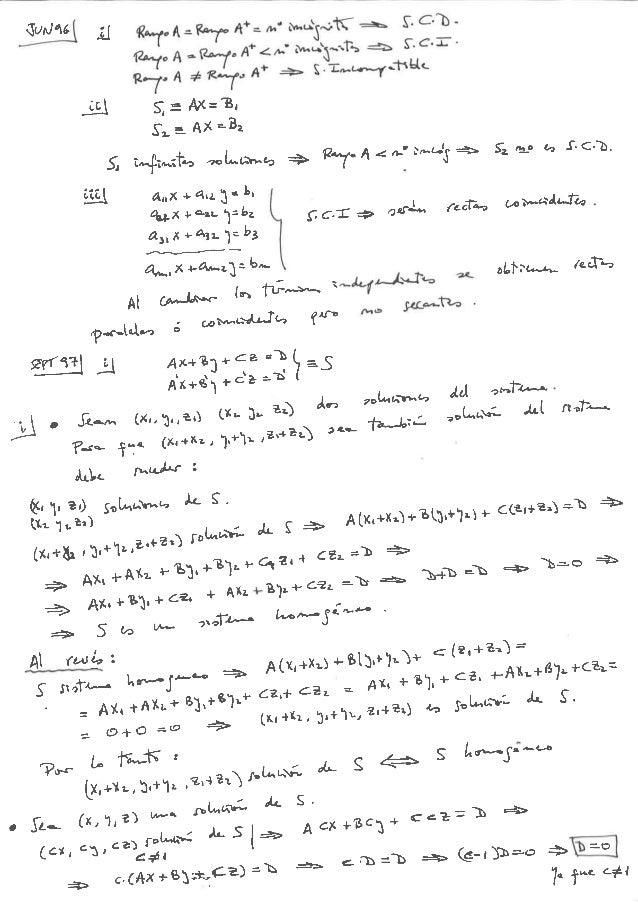 JUN96 i) Rango A = Rango A⁺ = nº incógnits ⇒ S.C.D.
Rango A = Rango A⁺ < nº incógnits ⇒ S.C.I.
Rango A ≠ Rango A⁺ ⇒ S. Incompatible
ii) S₁ ≡ AX = B₁
S₂ ≡ AX = B₂
S₁ infinitas soluciones ⇒ Rango A < nº incóg ⇒ S₂ no es S.C.D.
iii) a₁₁x + a₁₂y = b₁
a₂₁x + a₂₂y = b₂
a₃₁x + a₃₂y = b₃
aₘ₁x + aₘ₂y = bₘ
S.C.I ⇒ serán rectas coincidentes.
Al cambiar los términos independientes se obtienen rectas
paralelas ó coincidentes pero no secantes.
SEPT 97 i) Ax + By + Cz = D
A'x + B'y + C'z = D' } ≡ S
i) • Sean (x₁, y₁, z₁) (x₂ y₂ z₂) dos soluciones del sistema.
Para que (x₁+x₂, y₁+y₂, z₁+z₂) sea también solución del sistema
debe suceder:
(x₁ y₁ z₁)
(x₂ y₂ z₂) soluciones de S.
(x₁+x₂, y₁+y₂, z₁+z₂) solución de S ⇒ A(x₁+x₂) + B(y₁+y₂) + C(z₁+z₂) = D ⇒
⇒ Ax₁ + Ax₂ + By₁ + By₂ + Cz₁ + Cz₂ = D ⇒
⇒ Ax₁ + By₁ + Cz₁ + Ax₂ + By₂ + Cz₂ = D ⇒ D+D = D ⇒ D=0 ⇒
⇒ S es un sistema homogéneo.
Al revés:
S sistema homogeneo ⇒ A(x₁+x₂) + B(y₁+y₂) + C(z₁+z₂) =
= Ax₁ + Ax₂ + By₁ + By₂ + Cz₁ + Cz₂ = Ax₁ + By₁ + Cz₁ + Ax₂ + By₂ + Cz₂ =
= 0+0 = 0 ⇒ (x₁+x₂, y₁+y₂, z₁+z₂) es solución de S.
Por lo tanto:
(x₁+x₂, y₁+y₂, z₁+z₂) solución de S ⇔ S homogéneo
• Sea (x, y, z) una solución de S.
(cx, cy, cz) solución de S | ⇒ A cx + Bcy + Ccz = D ⇒
c≠1
⇒ c·(Ax + By + Cz) = D ⇒ c·D = D ⇒ (c-1)D = 0 ⇒ D=0
Ya que c≠1